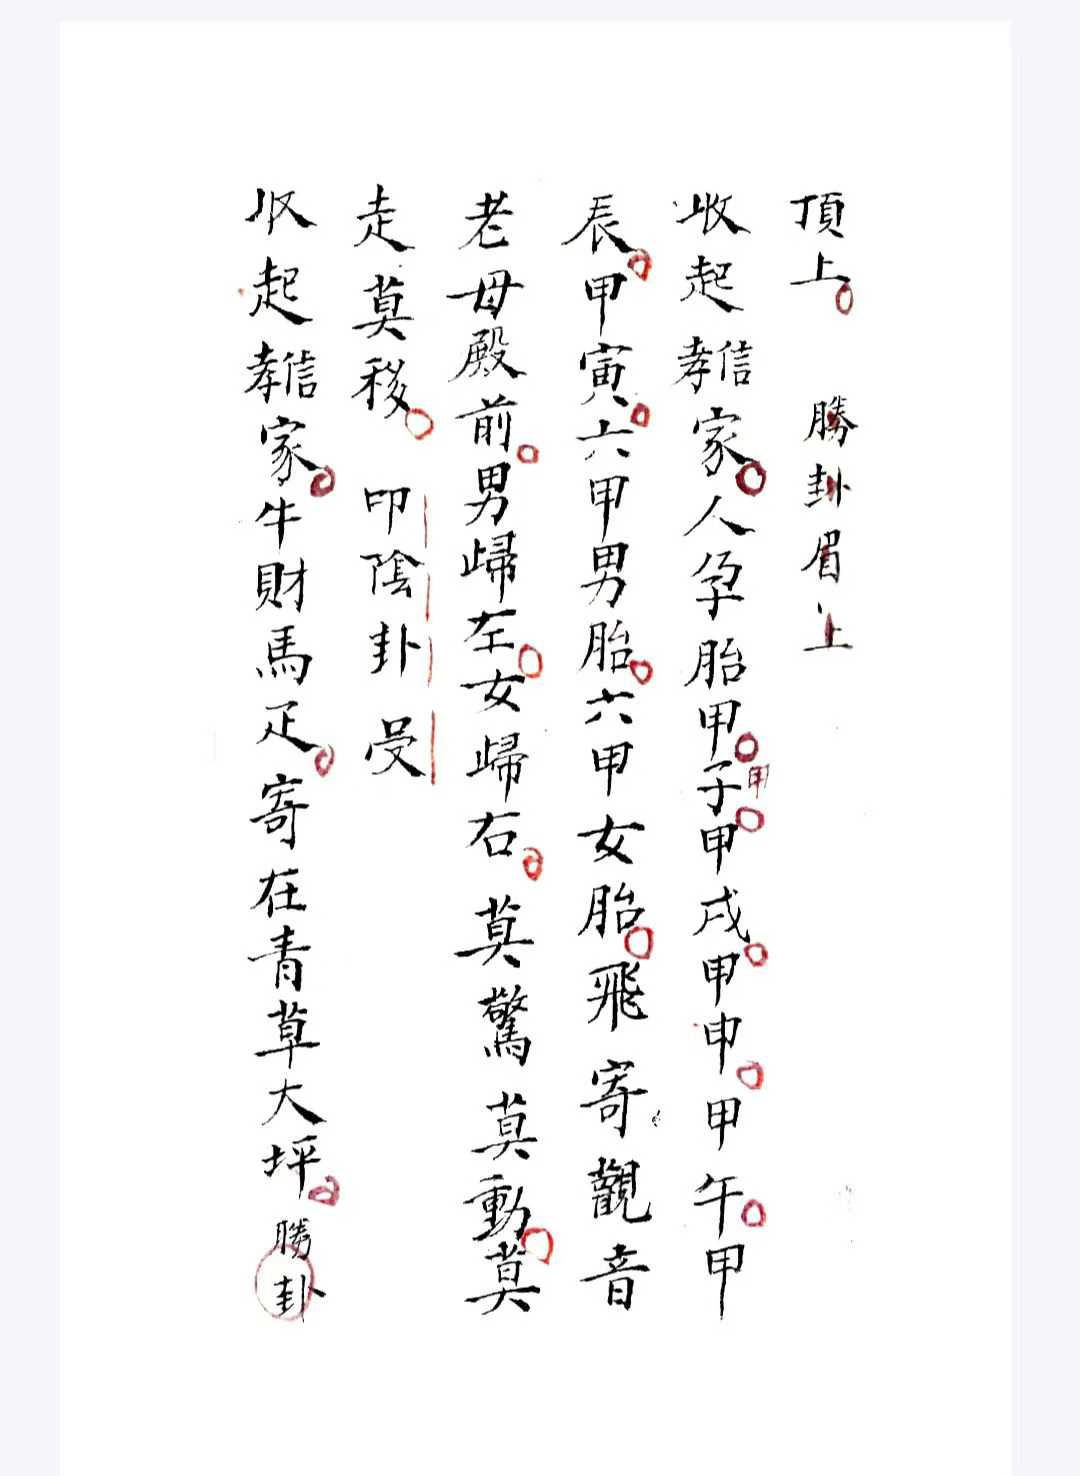 頂上　勝卦眉上
收起孝信家人孕胎甲子甲戌甲申甲午甲
甲
辰甲寅六甲男胎六甲女胎飛寄觀音
老母殿前男歸左女歸右莫驚莫動莫
走莫移　叩陰卦受
收起孝信家牛財馬疋寄在青草大坪勝卦